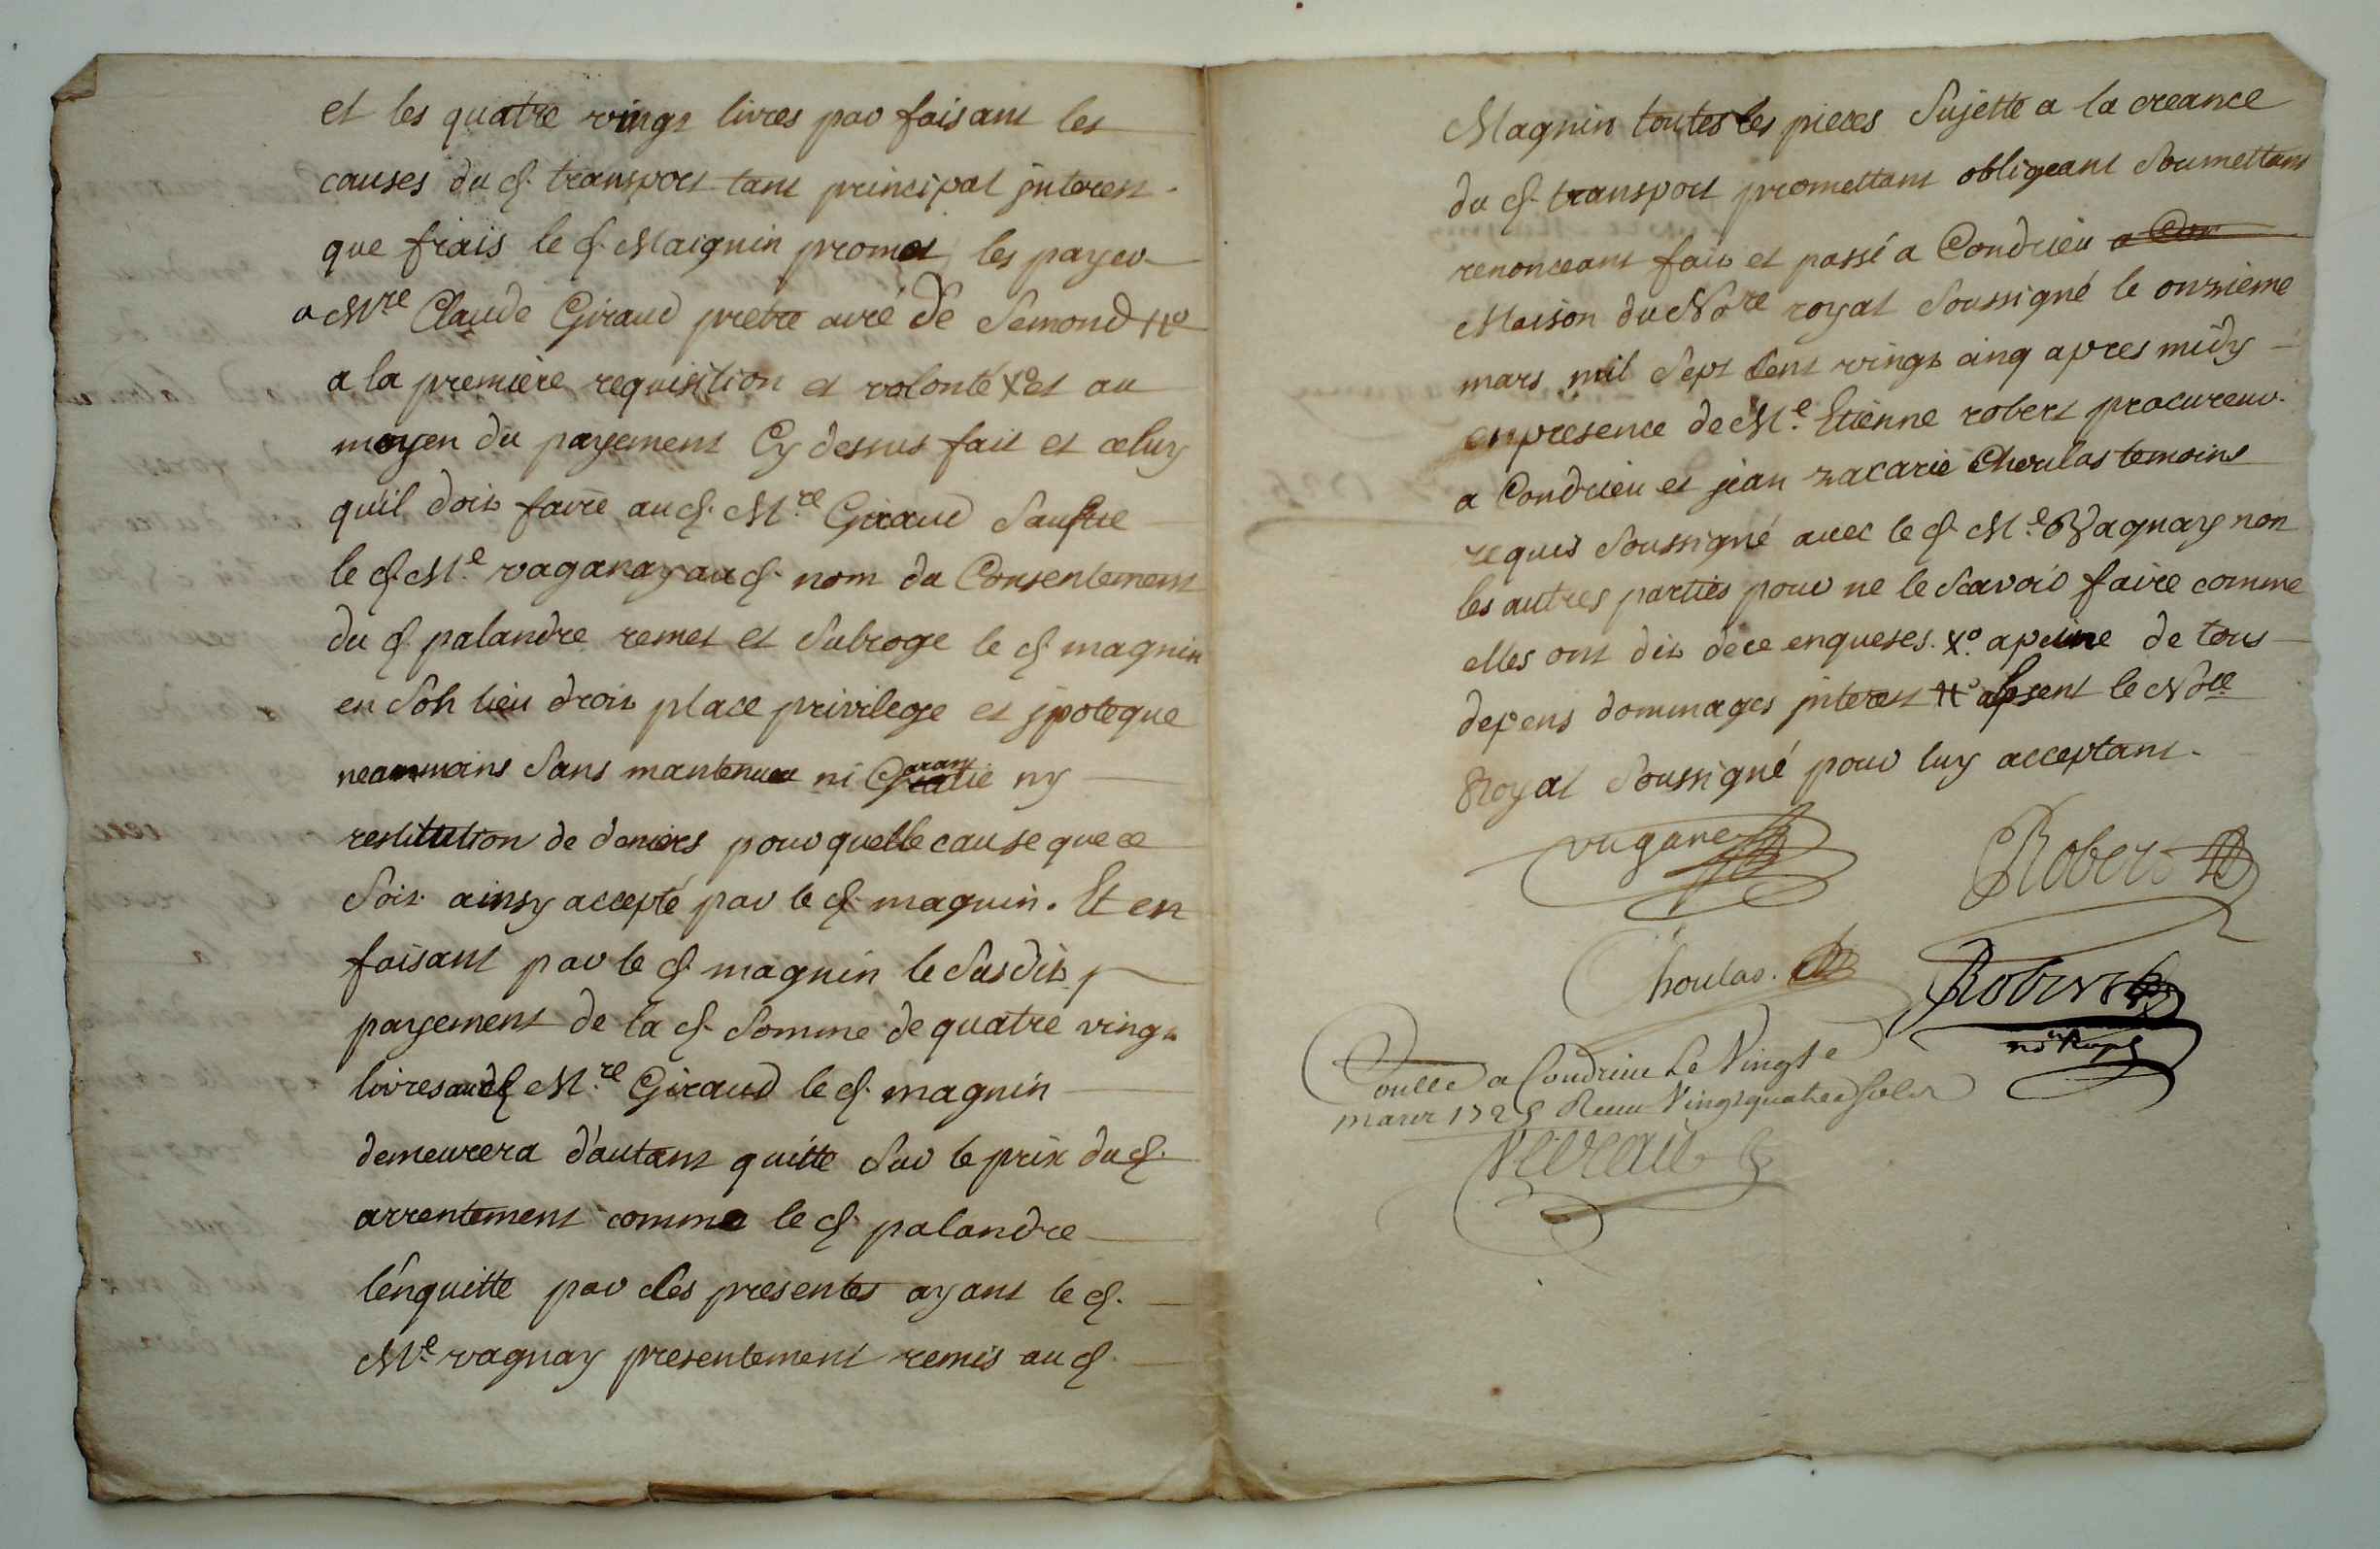 et les quatre vingt livres par faisant les
causes du d. transport tant principal jnterest
que frais le d. Maignin promet les payer
a Mre Claude Giraud pretre curé de Semond #o
a la premiere requisition et volonté Xo et au
moyen du payement Cy dessus fait et celuy
qu'il doit faire au d. Mre Giraud
le d. Me vaganay au d. nom du Consentement
du d. palandre remet et Subroge le d. magnin
en Son lieu droit place privilege et jpoteque
neanmoins Sans mantenue ni Garantie ny
restitution de deniers pour quelle cause que ce
Soit ainsy accepté par le d. magnin. Et en
faisant par le d. magnin le Susdit
payement de la d. Somme de quatre vingt
livres aud. Mre Giraud le d. magnin
demeurera d'autant quitte Sur le prix du d.
arrentement comme le d. palandre
l'enquitte par Ces presentes ayant le d.
Me vagnay presentement remis au d.
Magnin toutes les pieces Sujette a la creance
du d. transport promettant obligeant Soumettant
renonceant fait et passé a Condrieu a Con
Maison du Nore royal Soussigné le onzieme
mars mil Sept Cent vingt cinq apres midy
en presence de Me Etienne robert procureur
a Condrieu et jean zacarie Choulas temoins
requis Soussigné avec le d. Me Vagnay non
les autres parties pour ne le Scavoir faire comme
elles ont dit de ce enqueses. Xo a peine de tous
depens dommages jnterest #o absent le Nore
Royal Soussigné pour luy acceptant.
vaganay
Robert
Choulas.
Robert
no Royl
Conllé a Condrieu Le Vingt e
mars 1725 Receu Vingtquatre Sols